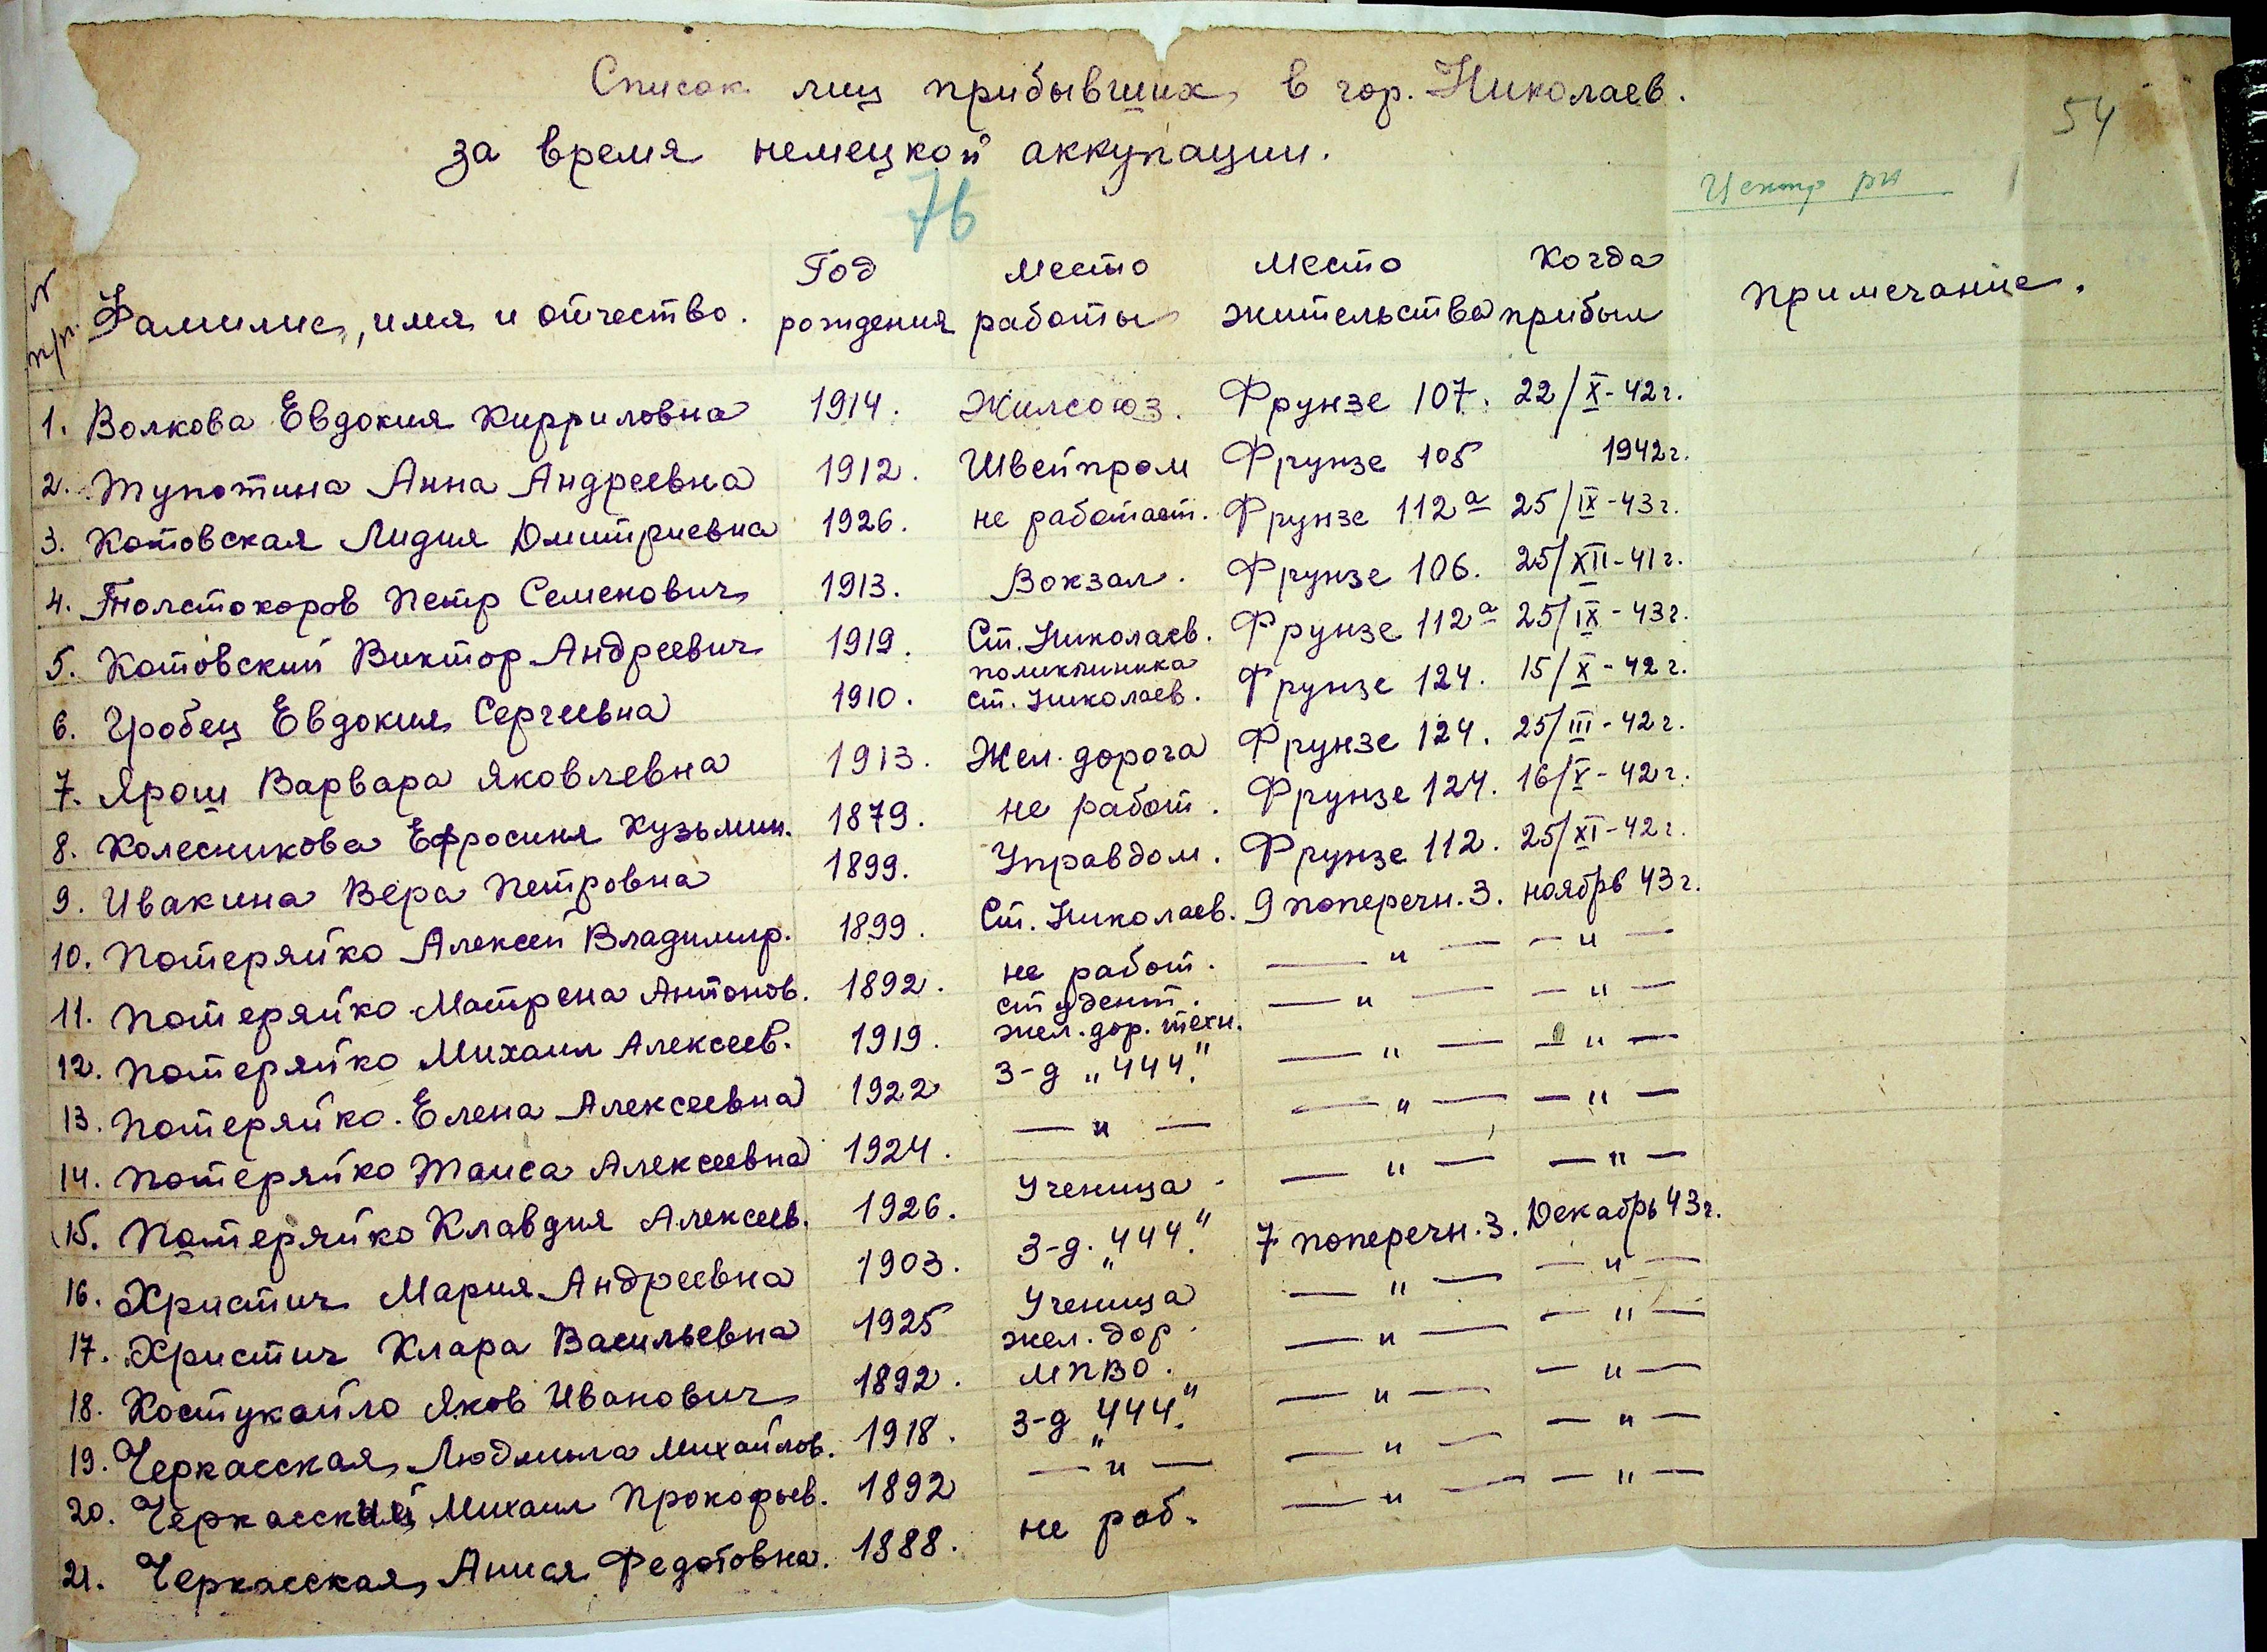 Список лиц прибывших в гор. Николаев.
54
за время немецкой аккупации.
76
Центр рн
N п/п. Фамилие, имя и отчество. Год рождения Место работы Место жительства Когда прибыл Примечание.
1. Волкова Евдокия Кирриловна 1914. Жилсоюз. Фрунзе 107. 22/X-42 г.
2. Тупотина Анна Андреевна 1912. Швейпром Фрунзе 105 1942 г.
3. Котовская Лидия Дмитриевна 1926. не работает. Фрунзе 112а 25/IX-43 г.
4. Толстокоров Петр Семенович 1913. Вокзал. Фрунзе 106. 25/XII-41 г.
5. Котовский Виктор Андреевич 1919. Ст. Николаев. Фрунзе 112а 25/IX-43 г.
6. Гробец Евдокия Сергеевна 1910. поликлиника ст. Николаев. Фрунзе 124. 15/X-42 г.
7. Ярош Варвара Яковлевна 1913. Жел. дорога Фрунзе 124. 25/III-42 г.
8. Колесникова Ефросиня Кузьмин. 1879. не работ. Фрунзе 124. 16/V-42 г.
9. Ивакина Вера Петровна 1899. Управдом. Фрунзе 112. 25/XI-42 г.
10. Потеряйко Алексей Владимир. 1899. Ст. Николаев. 9 поперечн. 3. ноябрь 43 г.
11. Потеряйко Матрена Антонов. 1892. не работ. — " — — " —
12. Потеряйко Михаил Алексеев. 1919. студент. жел. дор. техн. — " — — " —
13. Потеряйко Елена Алексеевна 1922 З-д „444." — " — — " —
14. Потеряйко Таиса Алексеевна 1924. — " — — " — — " —
15. Потеряйко Клавдия Алексеев. 1926. Ученица — " — — " —
16. Христич Мария Андреевна 1903. З-д. „444." 7 поперечн. 3. Декабрь 43 г.
17. Христич Клара Васильевна 1925 Ученица — " — — " —
18. Костукайло Яков Иванович 1892. жел. дор. МПВО. — " — — " —
19. Черкасская Людмила Михайлов. 1918. З-д „444." — " — — " —
20. Черкасский Михаил Прокофьев. 1892 — " — — " — — " —
21. Черкасская Анися Федотовна. 1888. не раб. — " — — " —